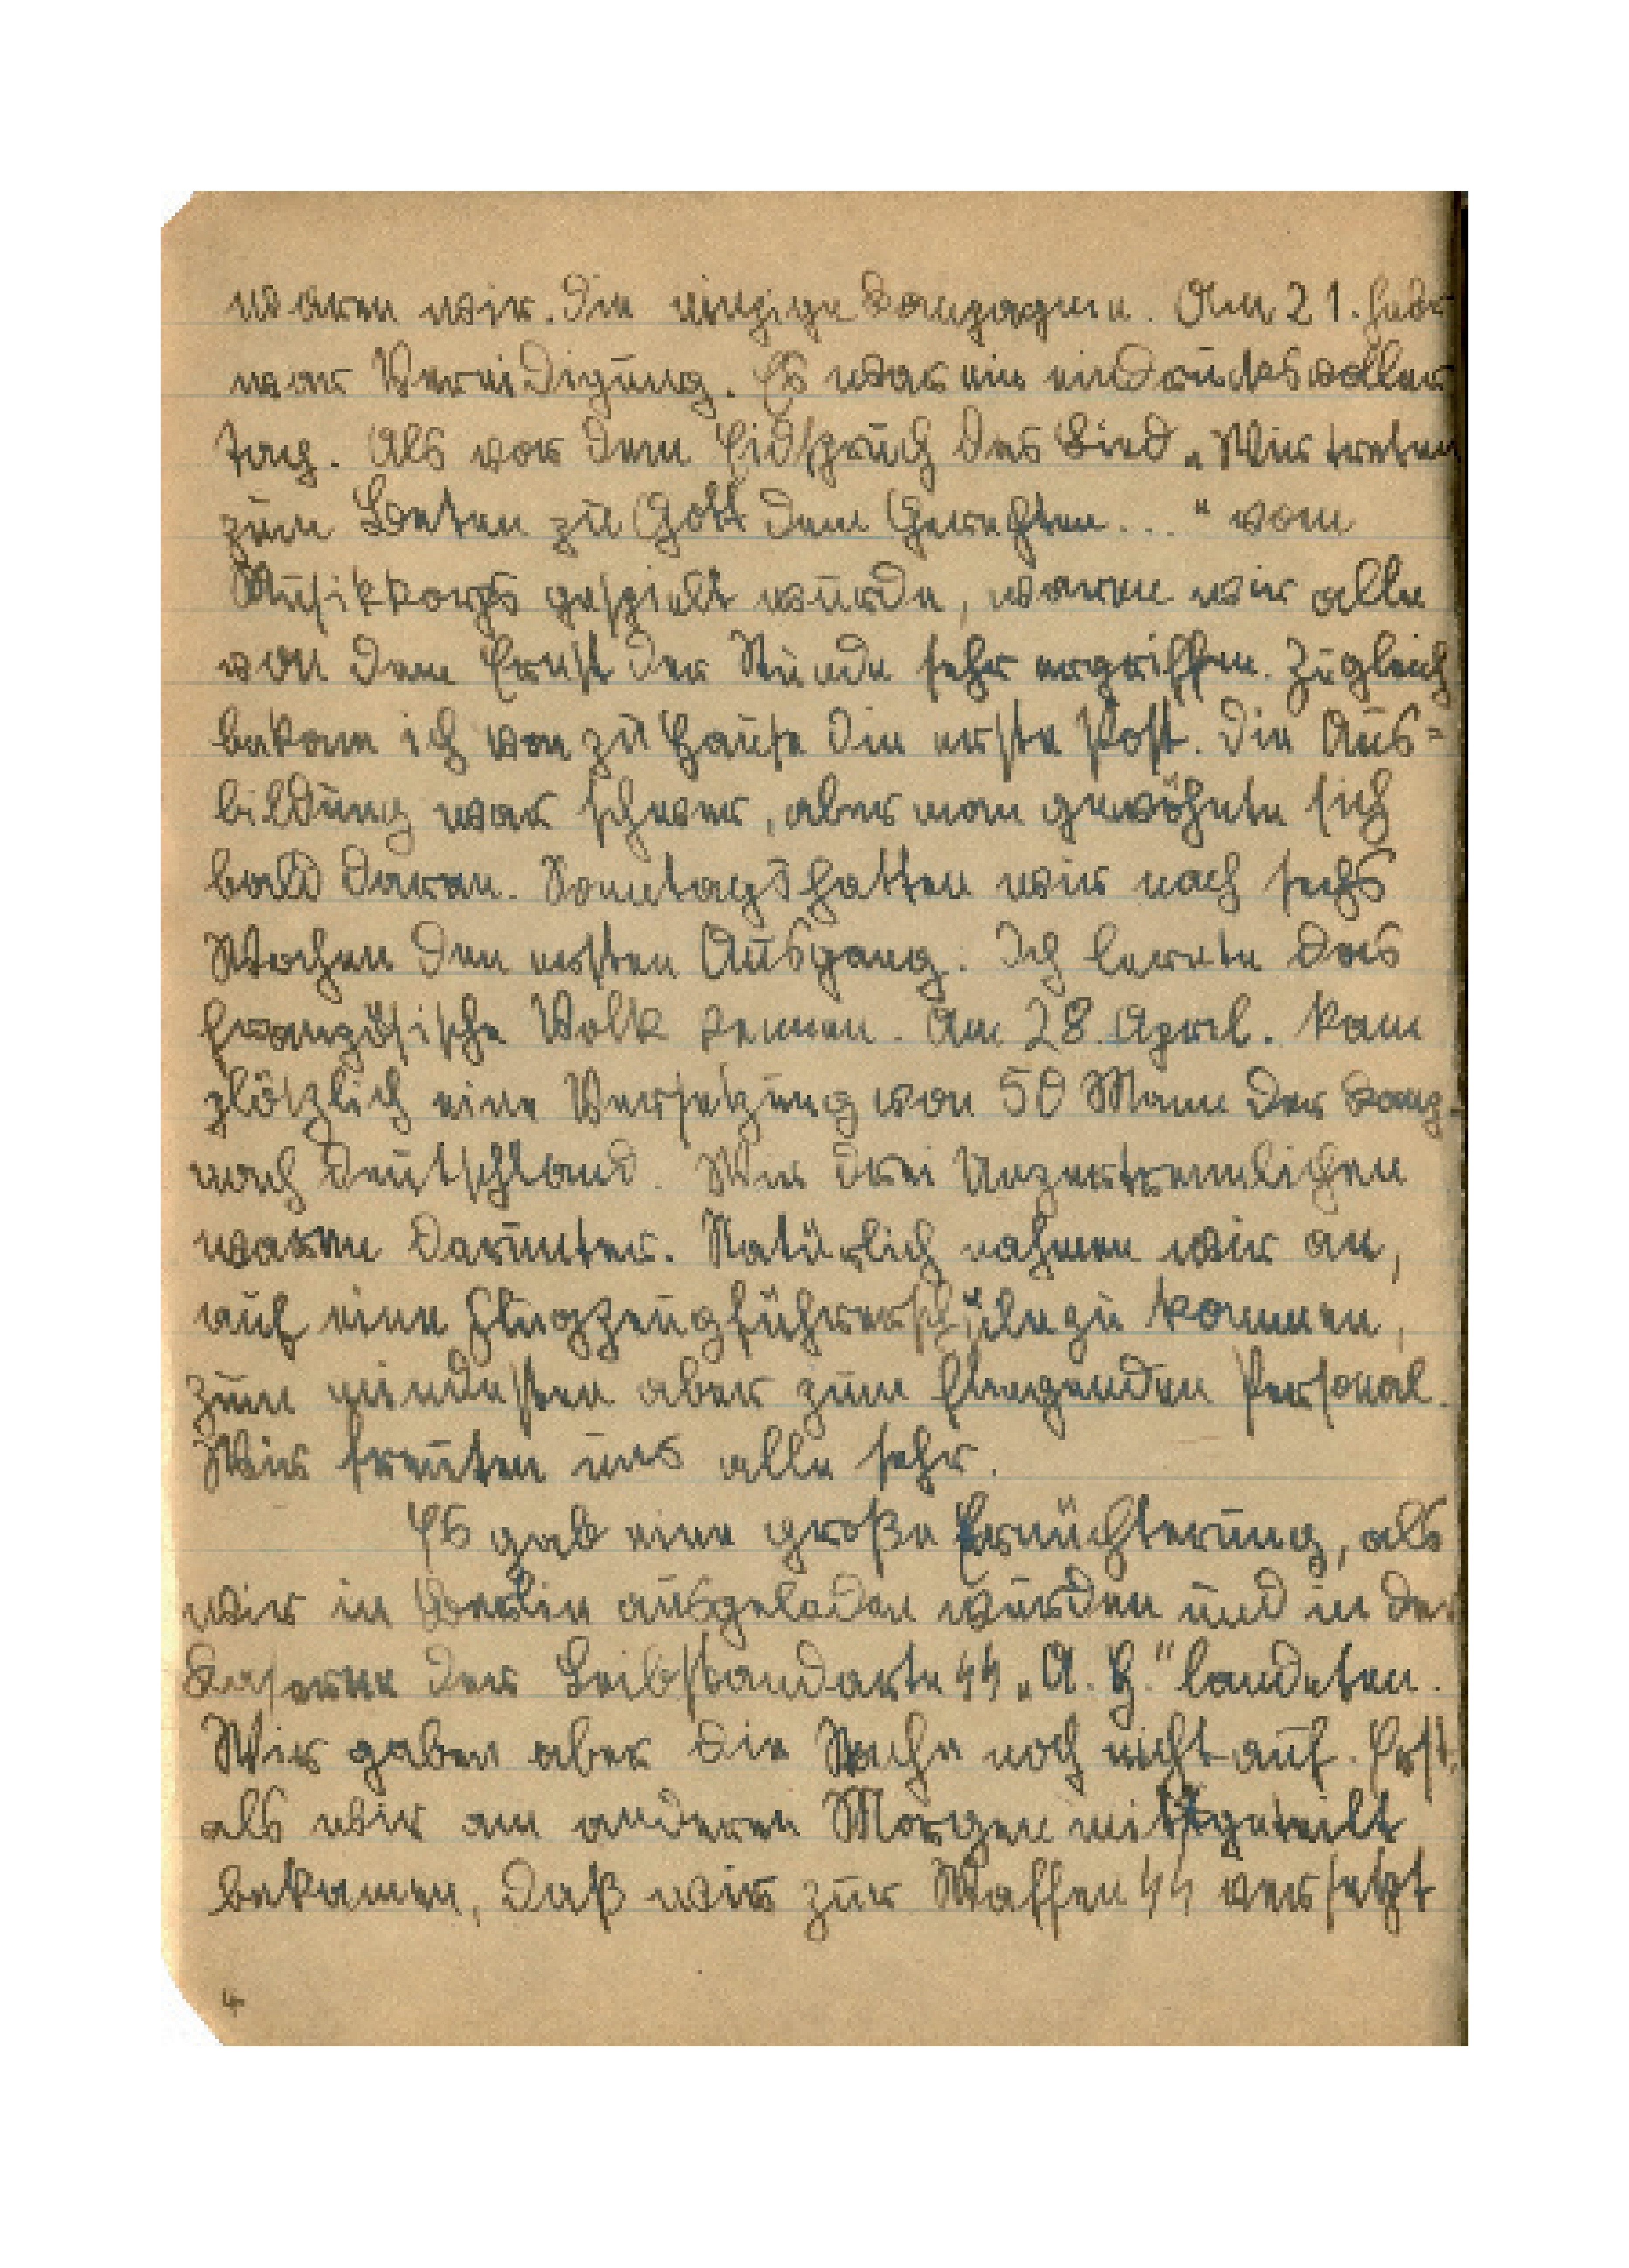 waren wir die einzige Kompagnie. Am 21. Febr
war Vereidigung. Es war ein eindrucksvoller
Tag. Als vor dem Eidspruch das Lied „Wir treten
zum Beten zu Gott dem Gerechten..." vom
Musikkorps gespielt wurde, waren wir alle
von dem Ernst der Stunde sehr ergriffen. Zugleich
bekam ich von zu Hause die erste Post. Die Aus=
bildung war schwer, aber man gewöhnte sich
bald daran. Sonntags hatten wir nach sechs
Wochen den ersten Ausgang. Ich lernte das
französische Volk kennen. Am 28. April. kam
plötzlich eine Versetzung von 50 Mann der Komp.
nach Deutschland. Wir drei Unzertrennlichen
waren darunter. Natürlich nahmen wir an,
auf eine Flugzeugführerschule zu kommen,
zum mindesten aber zum fliegenden Personal.
Wir freuten uns alle sehr.
Es gab eine große Ernüchterung, als
wir in Berlin ausgeladen wurden und in der
Kaserne der Leibstandarte SS „A. H." landeten.
Wir gaben aber die Sache noch nicht auf. Erst,
als wir am anderen Morgen mitgeteilt
bekamen, daß wir zur Waffen SS versetzt
4